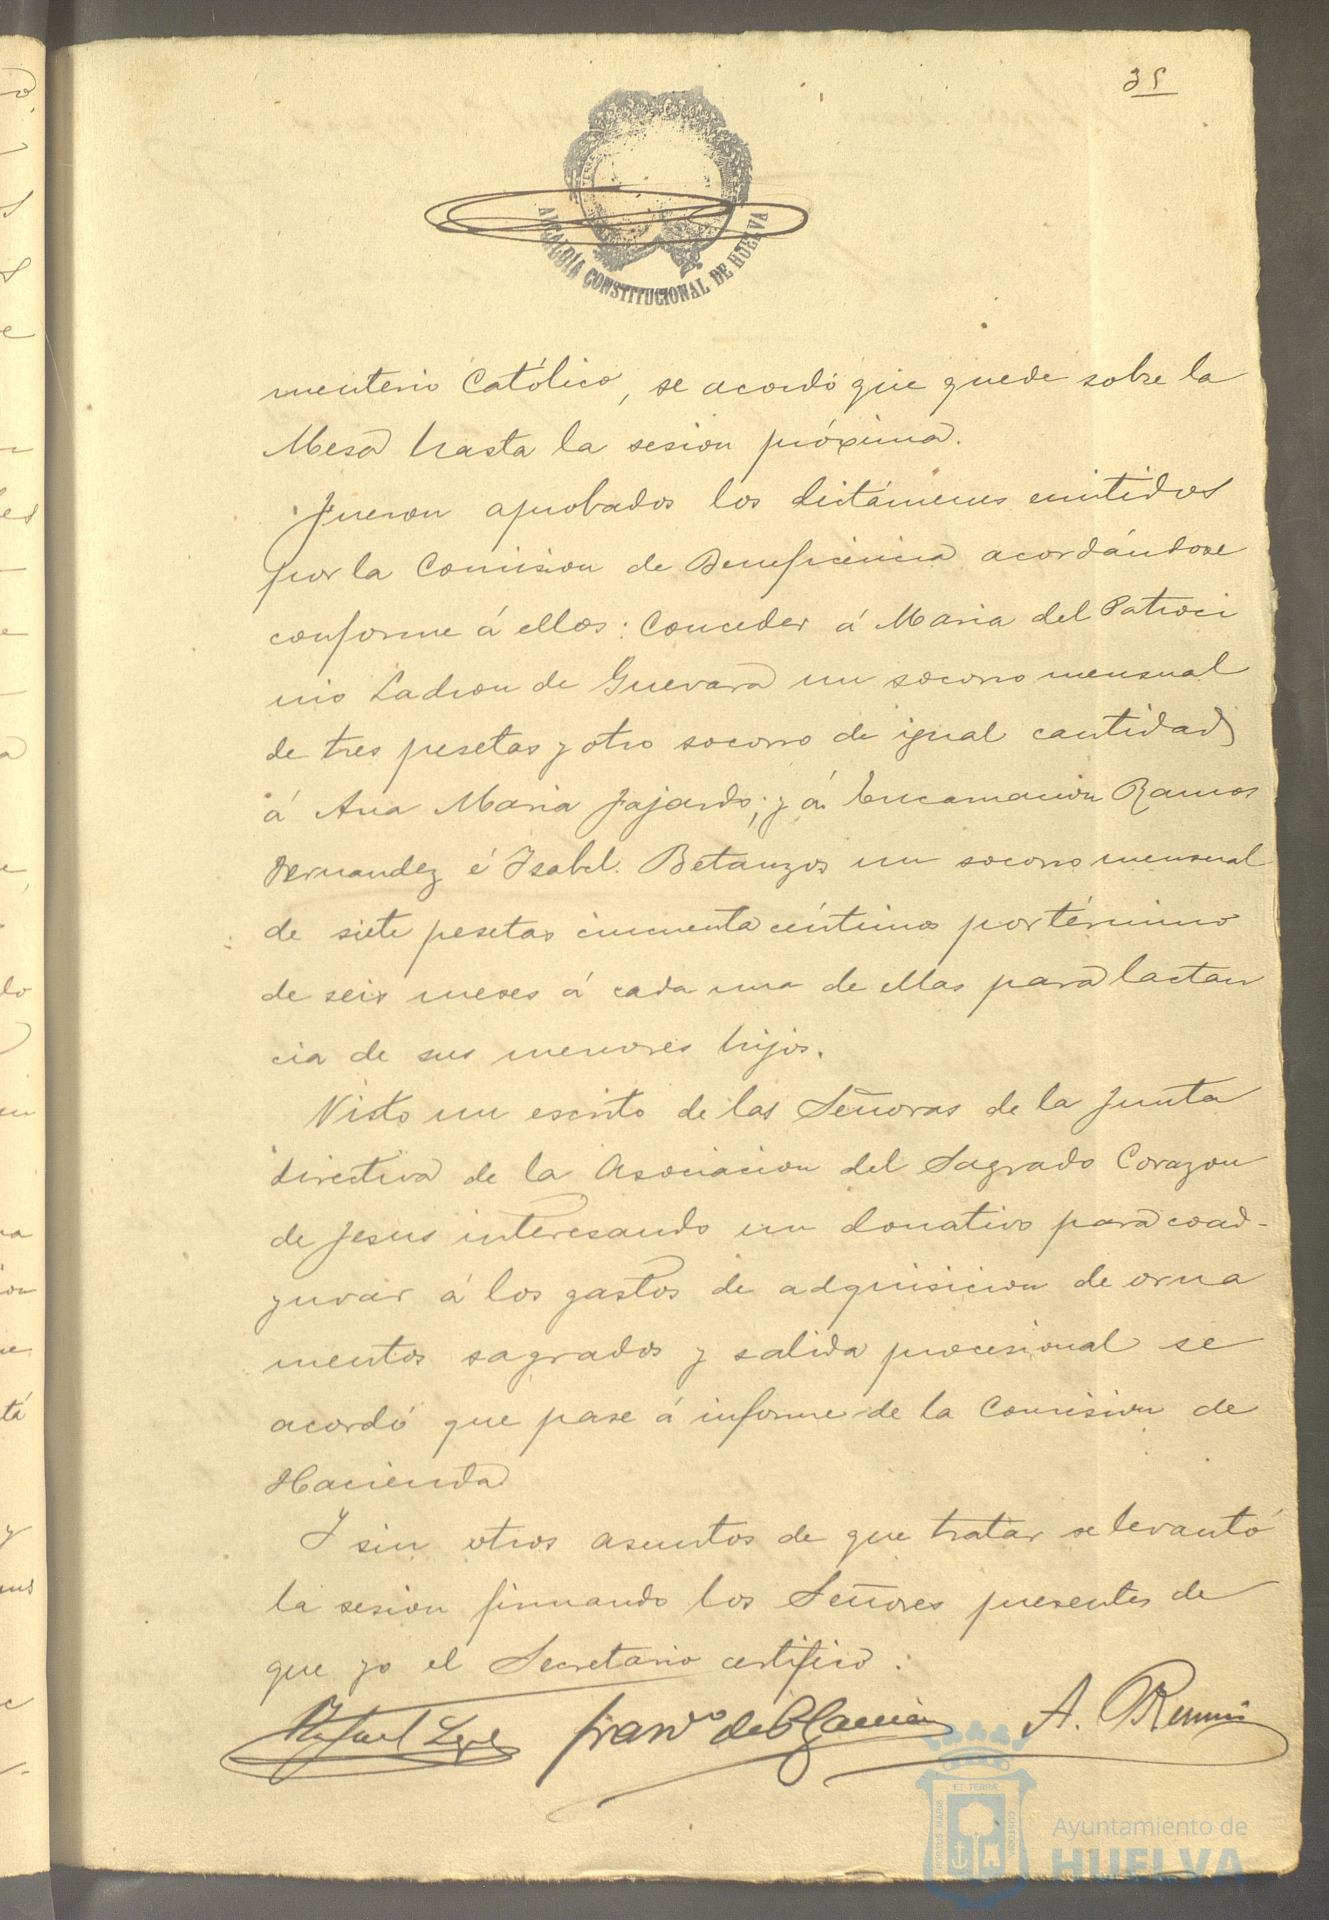 35
ALCALDÍA CONSTITUCIONAL DE HUELVA
menterio Católico, se acordó que quede sobre la
Mesa hasta la sesion próxima.
Fueron aprobados los dictámenes emitidos
por la Comision de Beneficencia acordándose
conforme á ellos: Conceder á Maria del Patroci
nio Ladron de Guevara un socorro mensual
de tres pesetas y otro socorro de igual cantidad
á Ana Maria Fajardo; y á Encarnacion Ramos
Hernandez é Isabel Betanzos un socorro mensual
de siete pesetas cincuenta céntimos por término
de seis meses á cada una de ellas para lactan
cia de sus menores hijos.
Visto un escrito de las Señoras de la Junta
directiva de la Asociacion del Sagrado Corazon
de Jesus interesando un donativo para coad-
yuvar á los gastos de adquisicion de orna
mentos sagrados y salida procesional se
acordó que pase á informe de la Comision de
Hacienda
Y sin otros asuntos de que tratar se levantó
la sesion firmando los Señores presentes de
que yo el Secretario certifico.
Franco de P García
A.
Ayuntamiento de
HUELVA